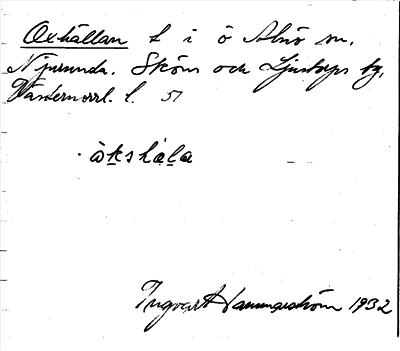 Oxhällan t i ö Alnö sn,
Njurunda, Sköns och Ljustorps tg,
Västernorrl. l. 51
òkshala
Ingvar Hammarström 1932